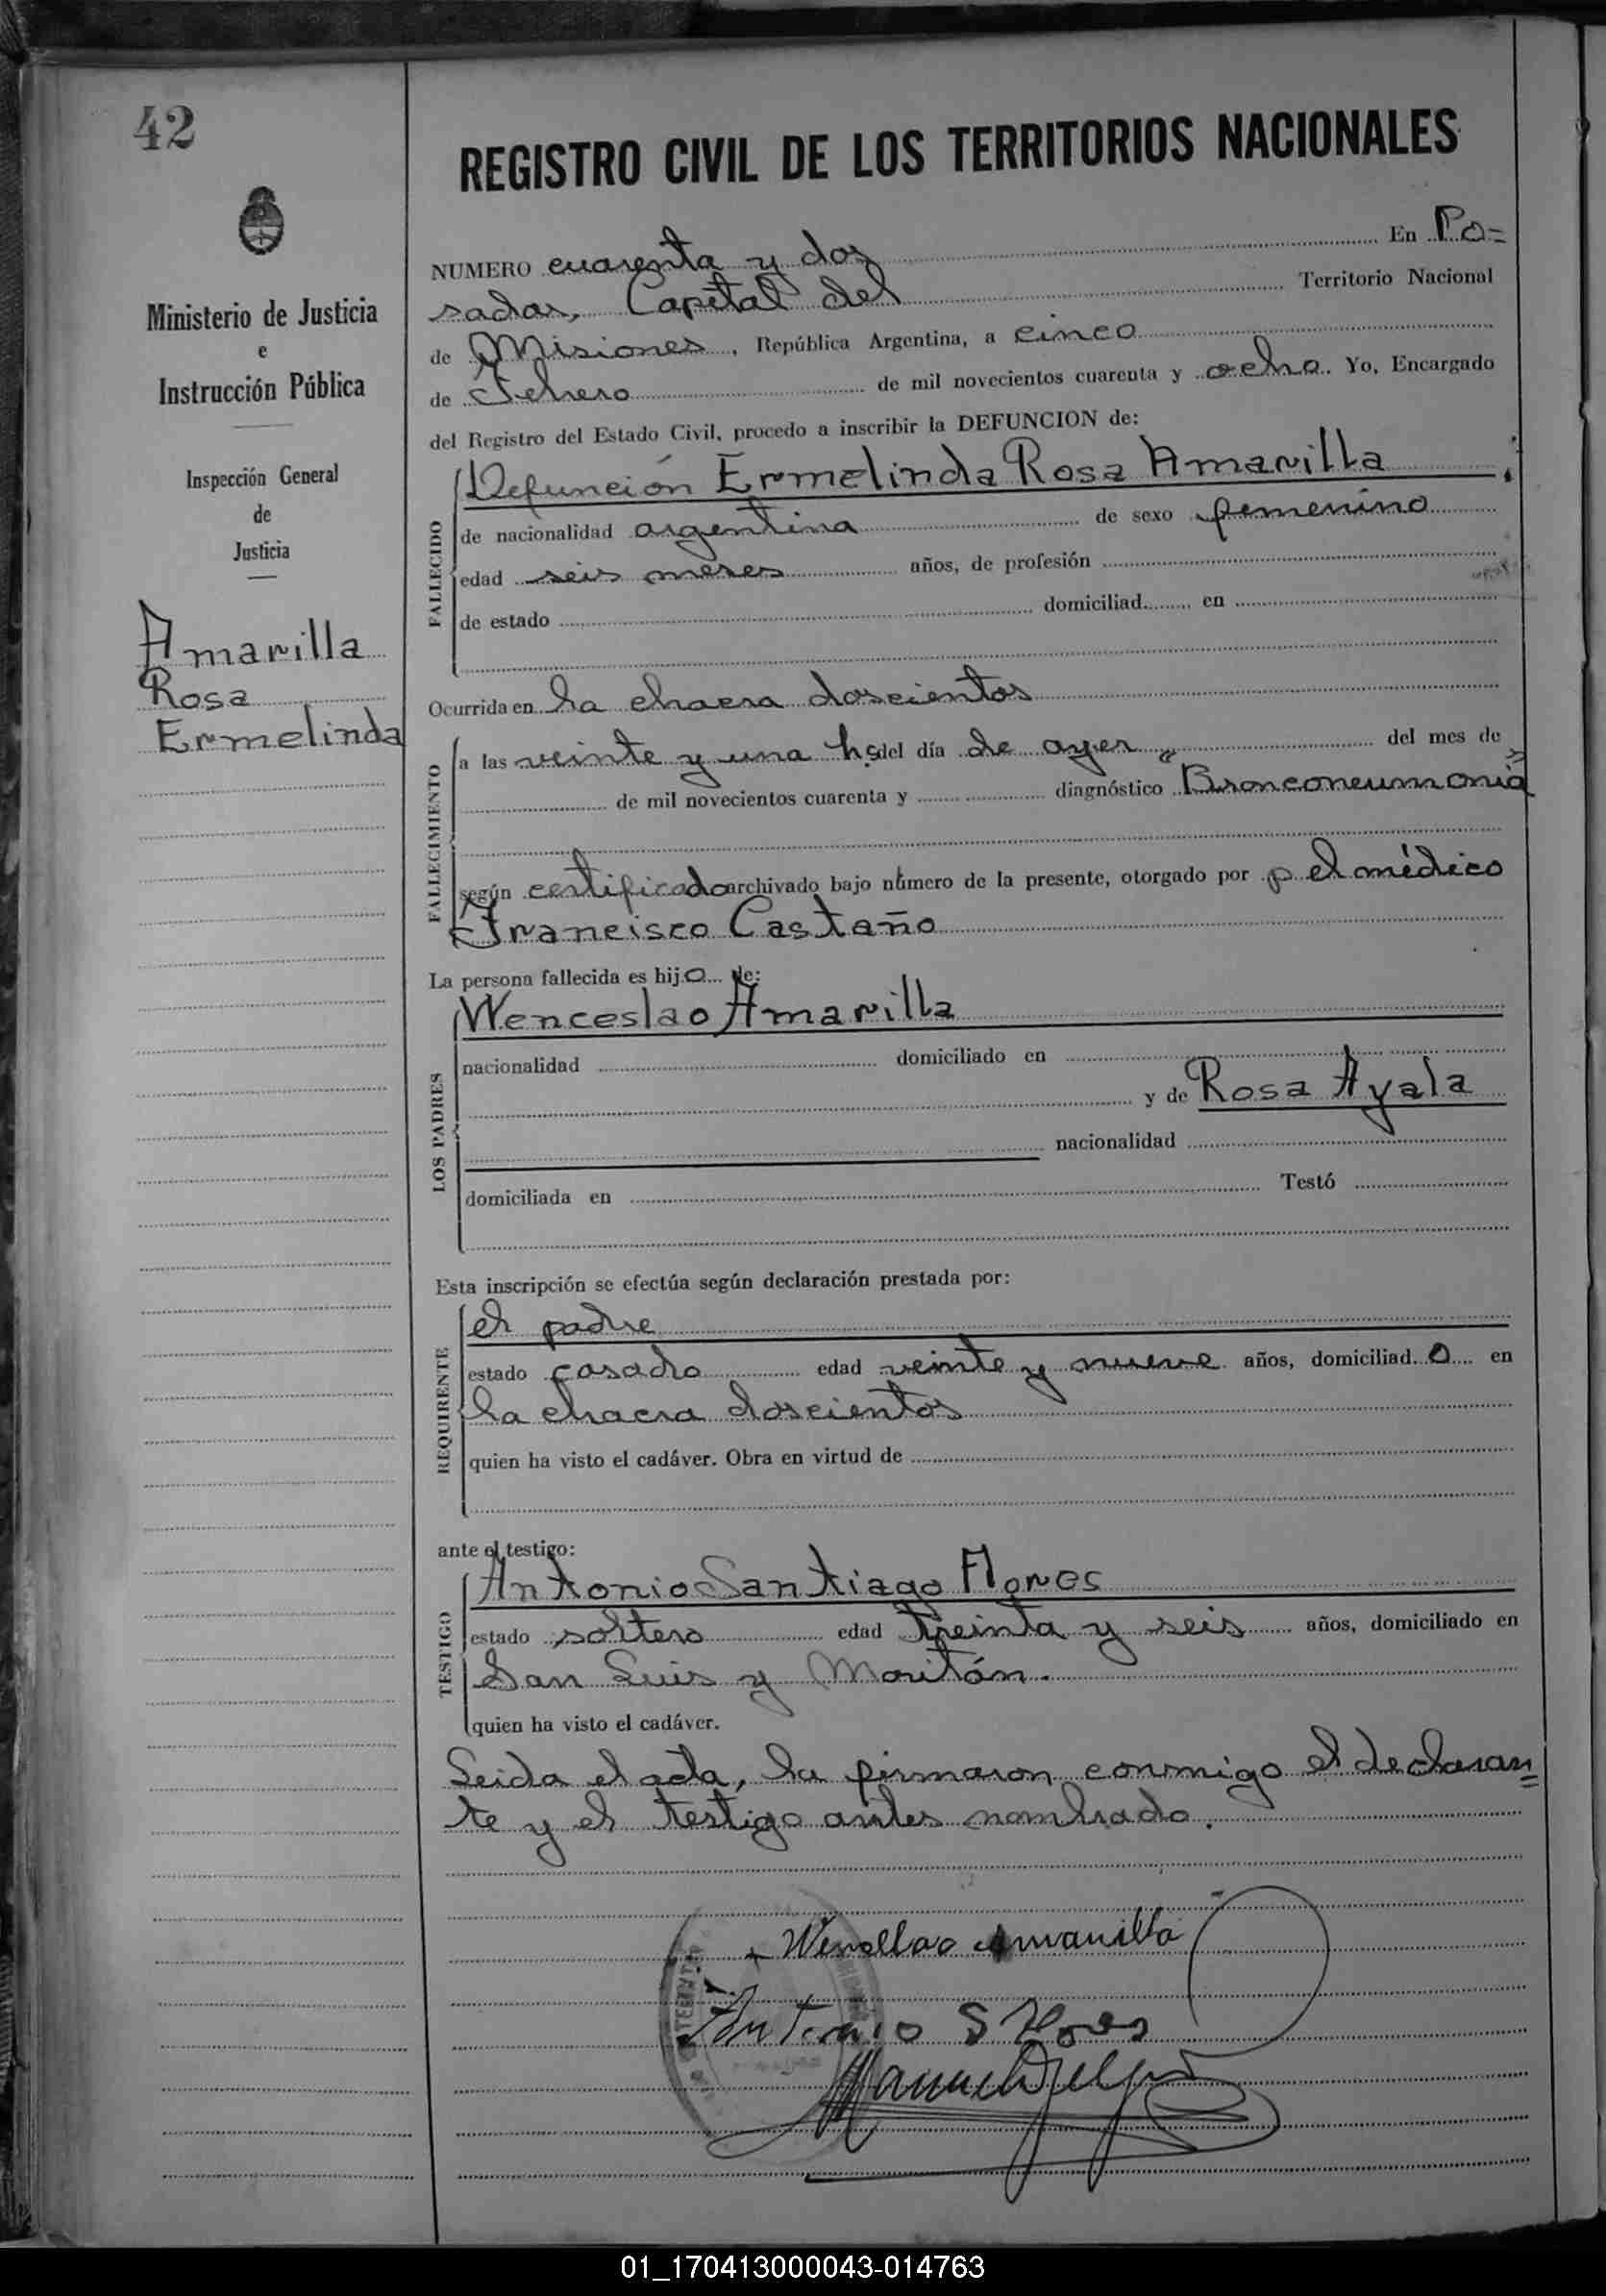 42
Ministerio de Justicia
e
Instrucción Pública
Inspección General
de
Justicia
Amarilla
Rosa
Ermelinda
REGISTRO CIVIL DE LOS TERRITORIOS NACIONALES
NUMERO cuarenta y dos En Po=
sadas, Capital del Territorio Nacional
de Misiones, República Argentina, a cinco
de Febrero de mil novecientos cuarenta y ocho. Yo, Encargado
del Registro del Estado Civil, procedo a inscribir la DEFUNCION de:
FALLECIDO
Defunción Ermelinda Rosa Amarilla
de nacionalidad argentina de sexo femenino
edad seis meses años, de profesión
de estado domiciliad en
Ocurrida en la chacra doscientos
FALLECIMIENTO
a las veinte y una hs del día de ayer del mes de
de mil novecientos cuarenta y diagnóstico "Bronconeumonia"
según certificado archivado bajo número de la presente, otorgado por p el médico
Francisco Castaño
La persona fallecida es hijo de:
LOS PADRES
Wenceslao Amarilla
nacionalidad domiciliado en
y de Rosa Ayala
nacionalidad
domiciliada en Testó
Esta inscripción se efectúa según declaración prestada por:
REQUIRENTE
el padre
estado casado edad veinte y nueve años, domiciliad o en
la chacra doscientos
quien ha visto el cadáver. Obra en virtud de
ante el testigo:
TESTIGO
Antonio Santiago Flores
estado soltero edad treinta y seis años, domiciliado en
San Luis y Moritán.
quien ha visto el cadáver.
Leida el acta, la firmaron conmigo el declaran=
te y el testigo antes nombrado.
Amarilla
Antonio S Flores
01_170413000043-014763